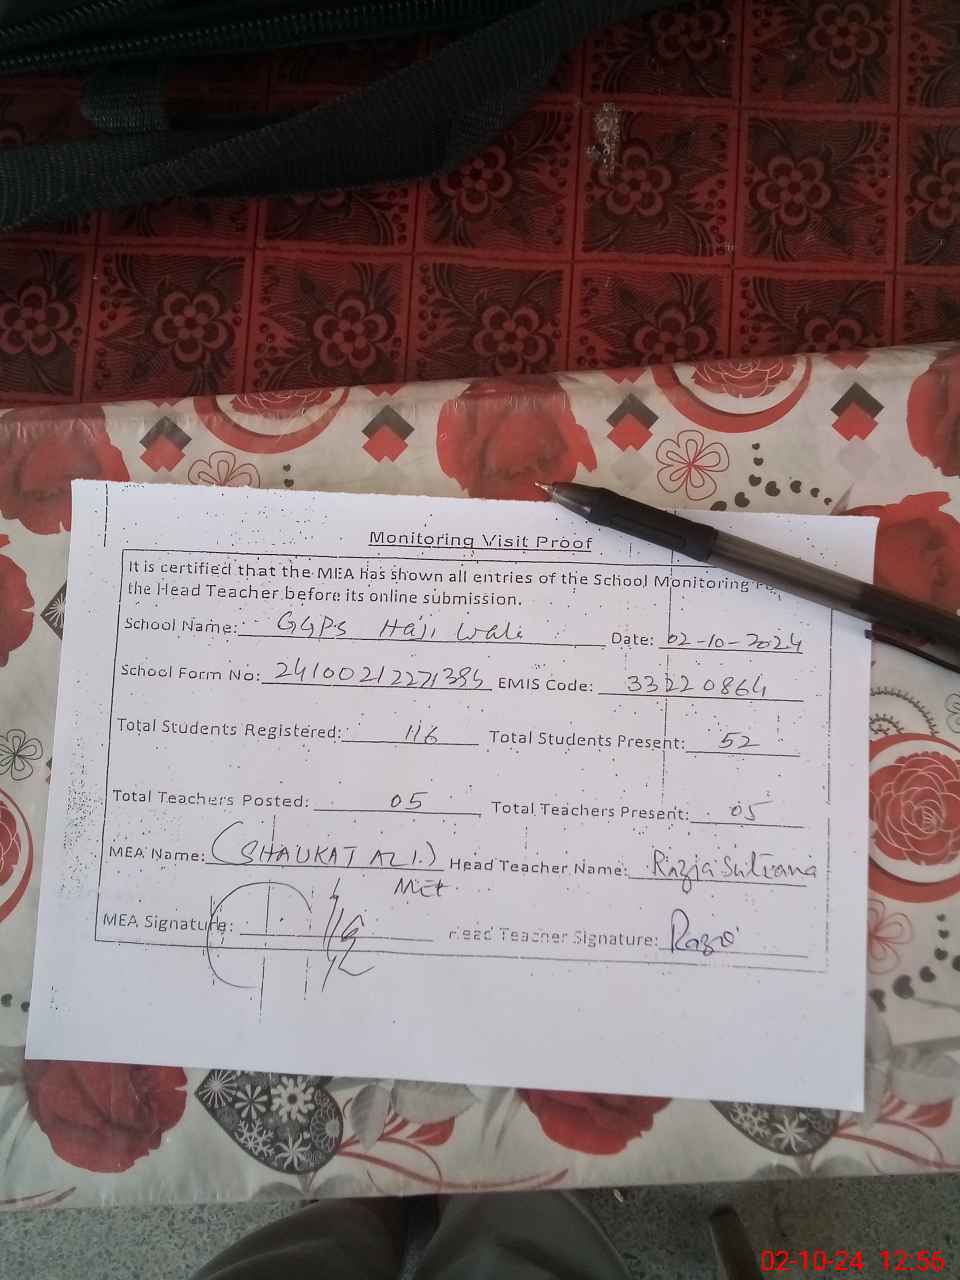 Monitoring Visit Proof
It is certified that the MEA has shown all entries of the School Monitoring
the Head Teacher before its online submission.
School Name: GGPS Haji Wala Date: 02-10-2024
School Form No: EMIS Code: 33220864
Total Students Registered: 116 Total Students Present: 52
Total Teachers Posted: 05 Total Teachers Present: 05
MEA Name: (SHAUKAT ALI) Head Teacher Name: Razia Sultana
MEA Signature: Head Teacher Signature: Razia
02-10-24 12:56